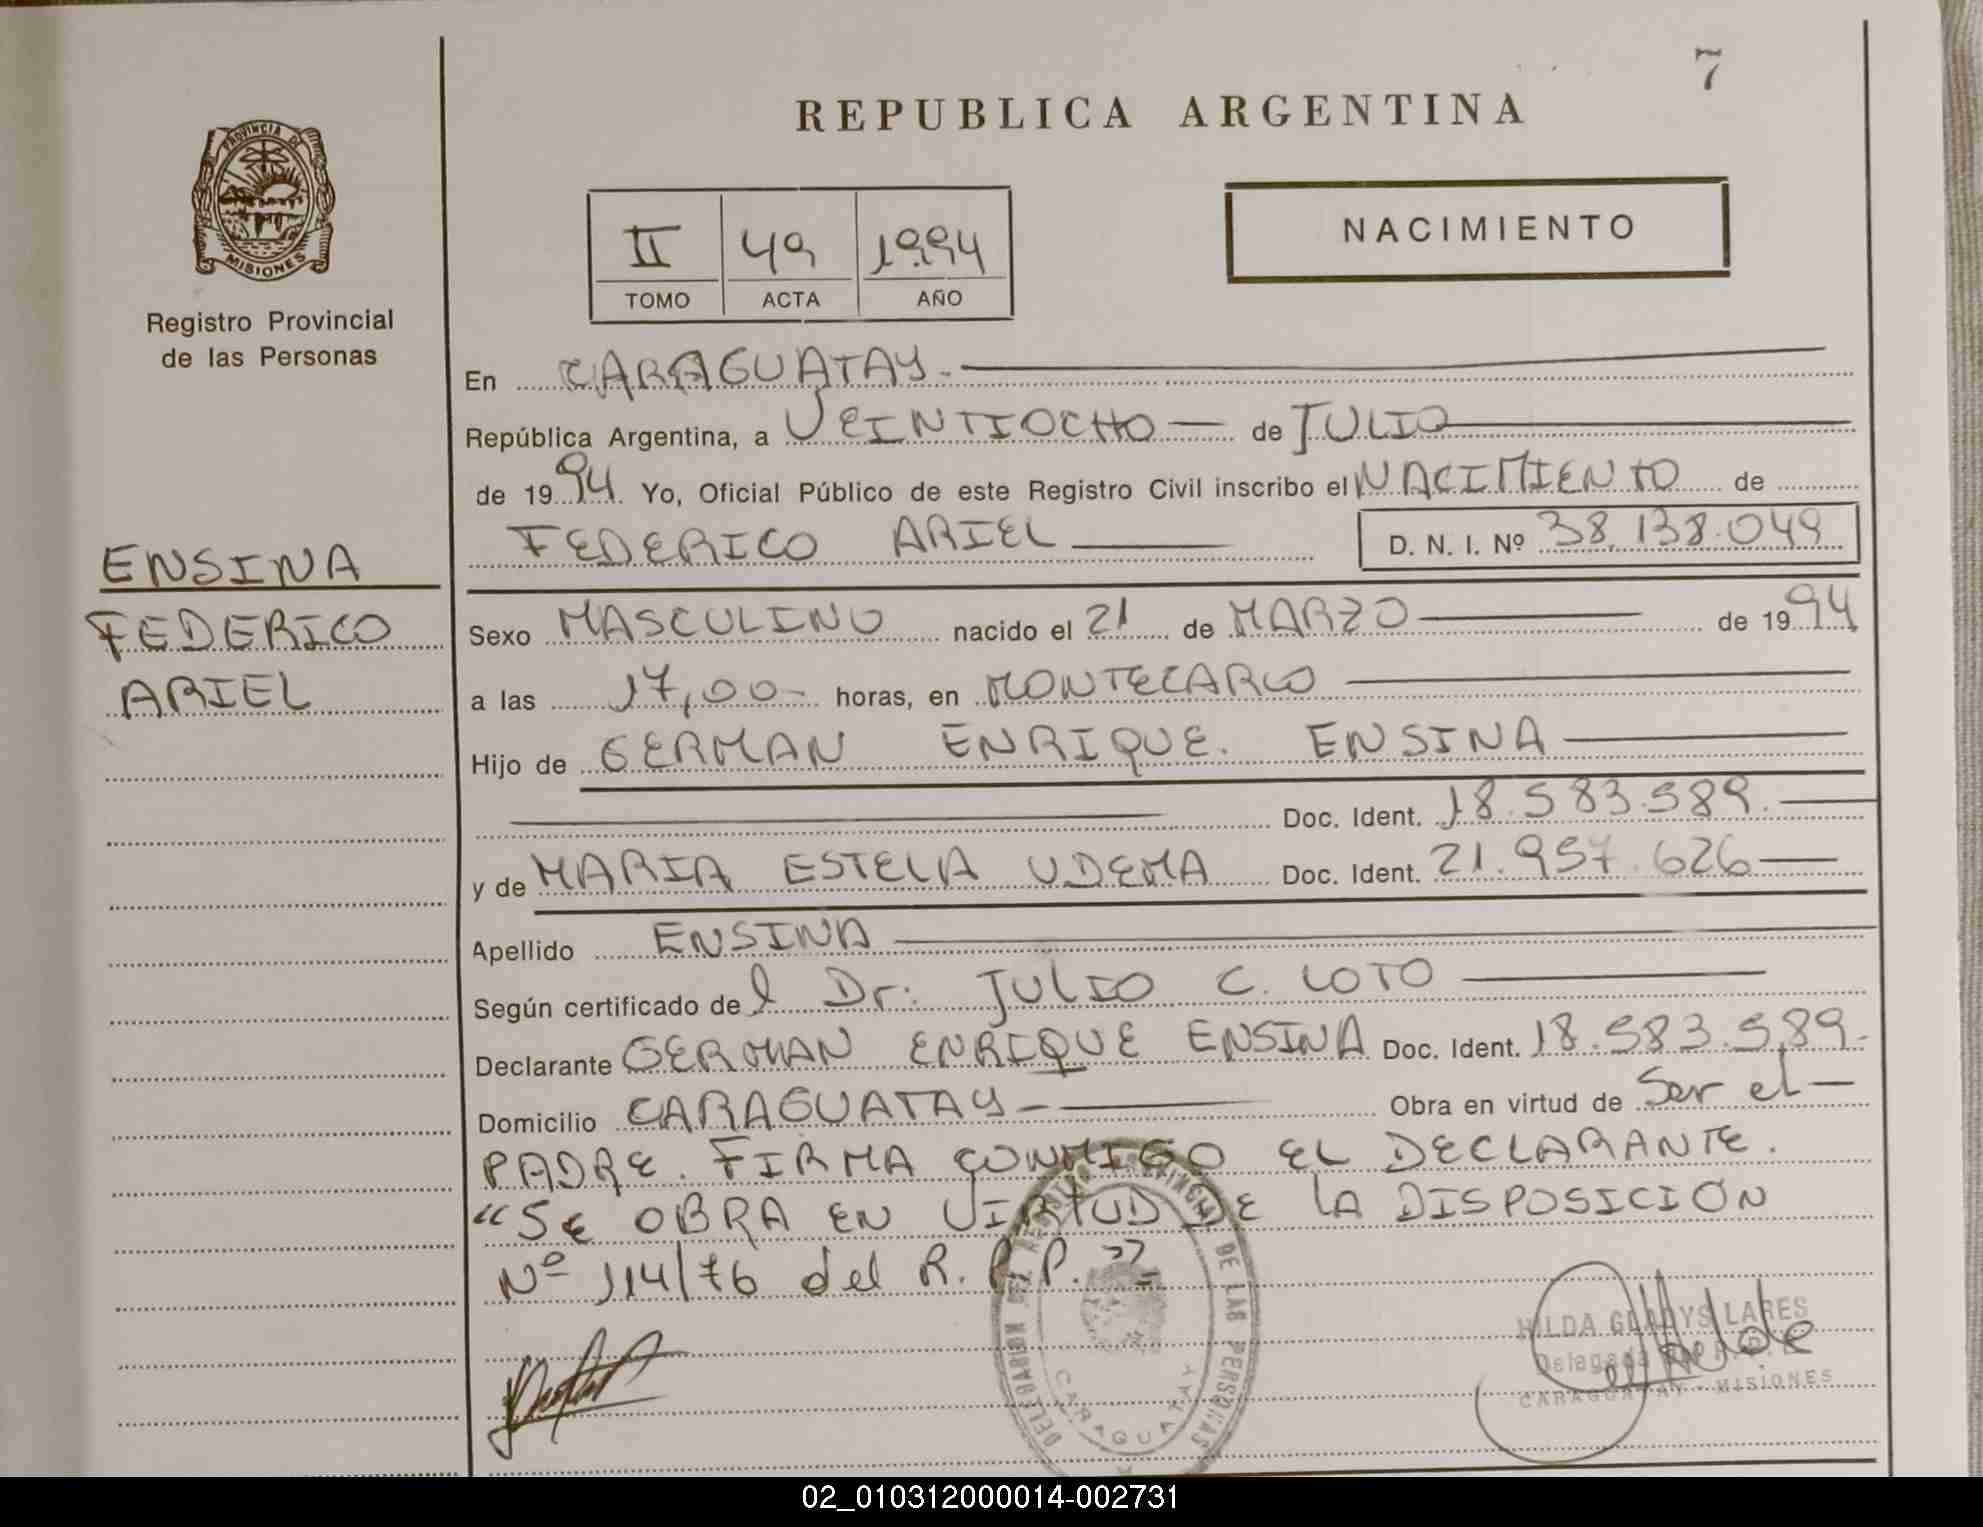 7
REPUBLICA ARGENTINA
PROVINCIA DE
MISIONES
Registro Provincial
de las Personas
II 49 1994
TOMO ACTA AÑO
NACIMIENTO
En CARAGUATAY.
República Argentina, a VEINTIOCHO de JULIO
de 1994. Yo, Oficial Público de este Registro Civil inscribo el NACIMIENTO de
FEDERICO ARIEL D. N. I. Nº 38.138.049
ENSINA
FEDERICO
ARIEL
Sexo MASCULINO nacido el 21 de MARZO de 1994
a las 17,00- horas, en MONTECARLO
Hijo de GERMAN ENRIQUE. ENSINA
Doc. Ident. 18.583.589.
y de MARIA ESTELA UDEMA Doc. Ident. 21.957.626
Apellido ENSINA
Según certificado del Dr. JULIO C. LOTO
Declarante GERMAN ENRIQUE ENSINA Doc. Ident. 18.583.589.
Domicilio CARAGUATAY- Obra en virtud de Ser el
PADRE. FIRMA CONMIGO EL DECLARANTE.
"SE OBRA EN VIRTUD DE LA DISPOSICION
Nº 114/76 del R.P.P."
DELEGACION DEL REGISTRO PROVINCIAL DE LAS PERSONAS
CARAGUATAY
HILDA GLADYS LARES
Delegada R.P.P.
CARAGUATAY - MISIONES
02_010312000014-002731